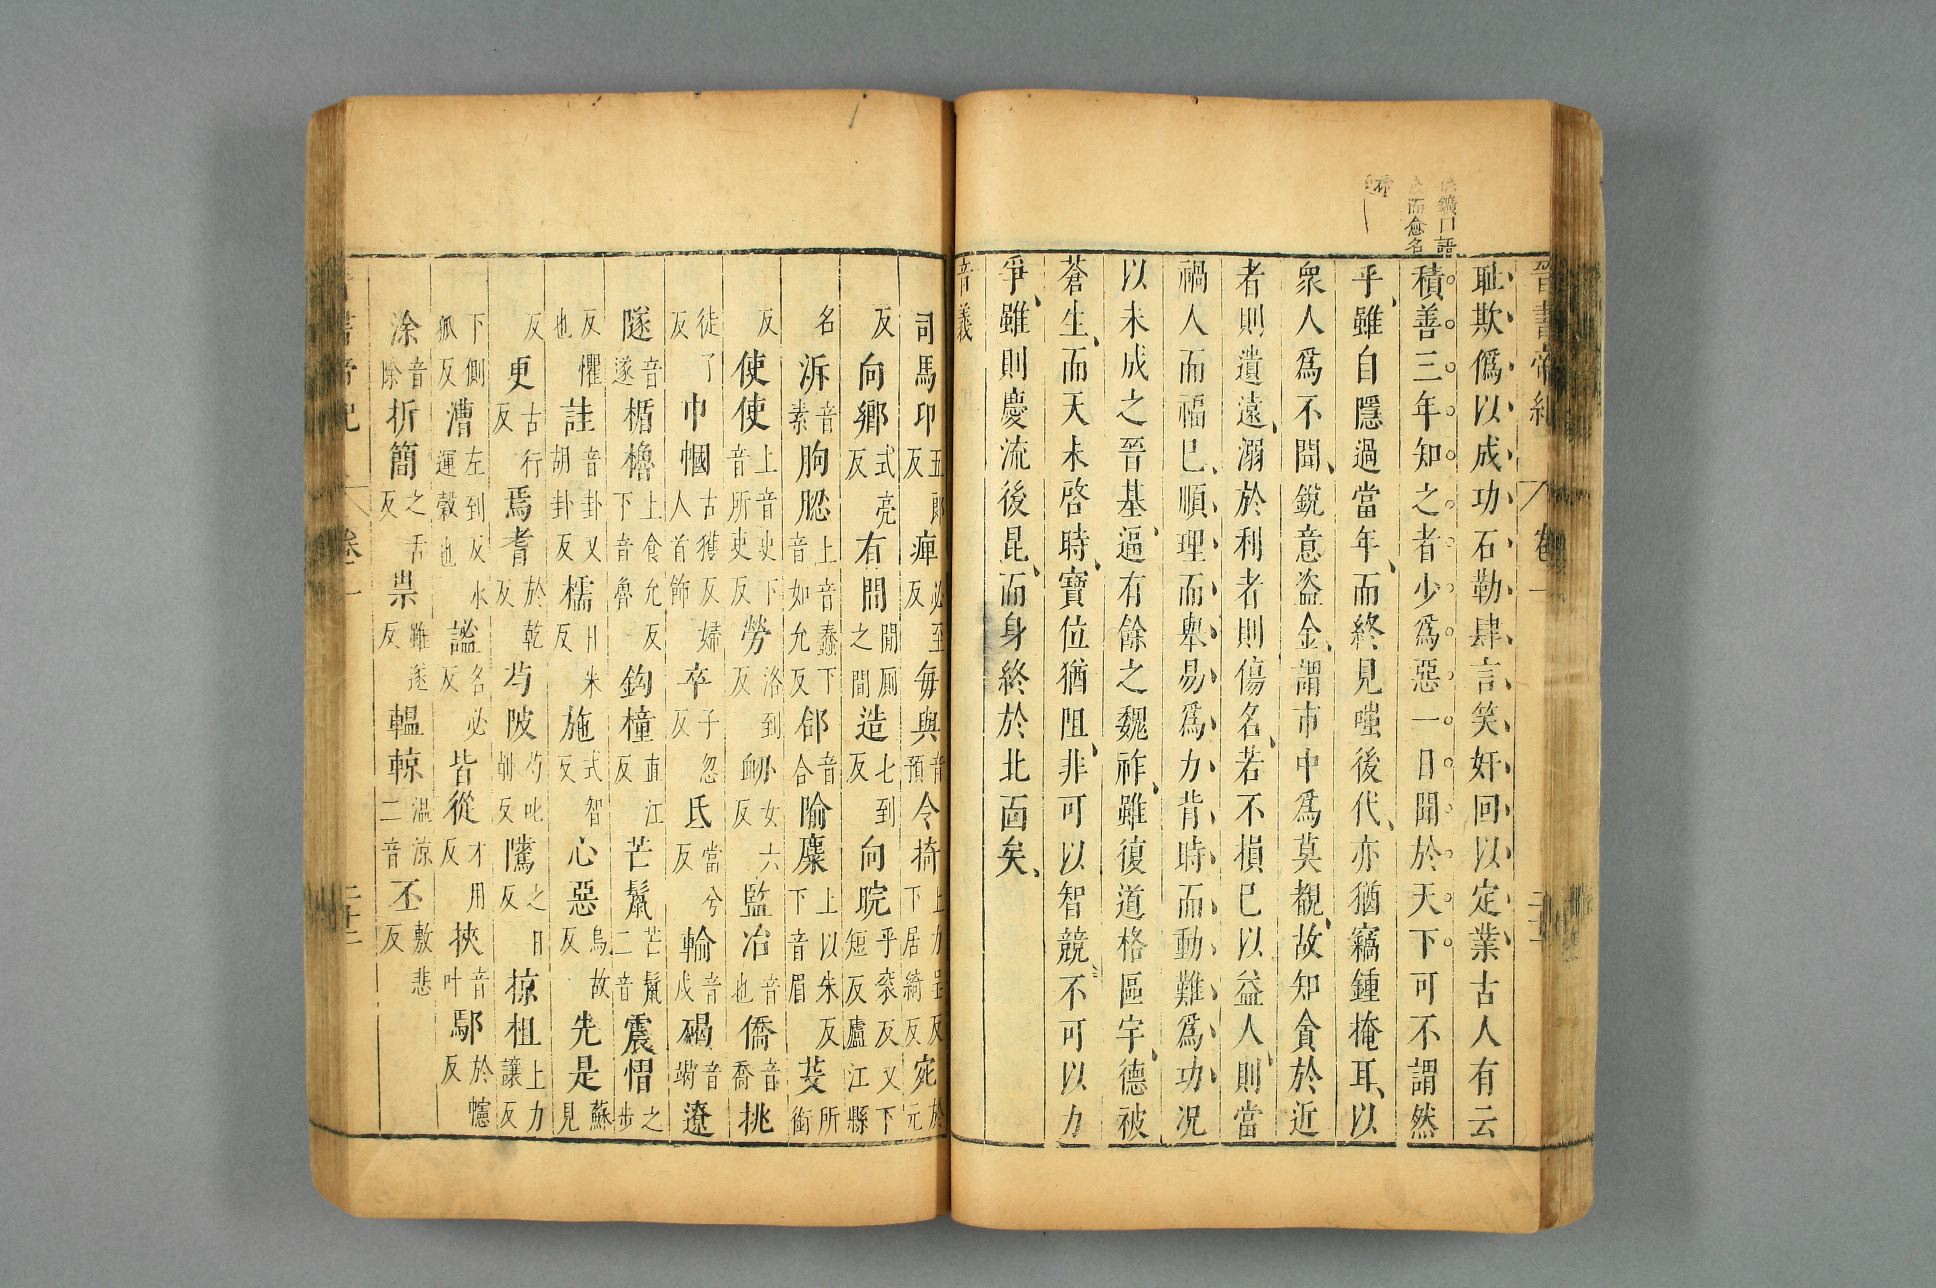 鑛口語
而愈名
晉書帝紀 卷一
耻欺僞以成功石勒肆言笑奸回以定業古人有云
積善三年知之者少爲惡一日聞於天下可不謂然
乎雖自隱過當年而終見嗤後代亦猶竊鍾掩耳以
衆人爲不聞銳意盗金謂市中爲莫覩故知貪於近
者則遺遠溺於利者則傷名若不損巳以益人則當
禍人而福巳順理而舉易爲力背時而動難爲功况
以未成之晉基逼有餘之魏祚雖復道格區宇德被
蒼生而天未啓時寶位猶阻非可以智競不可以力
爭雖則慶流後昆而身終於北面矣
音義
司馬卬五郎反痺必至反每與音預令掎上力呈反下居綺反宛於元
反向鄉式亮反有間閒厠之間造七到反向晥乎衮反又下短反廬江縣
名泝音素朐䏰上音蠢下音如允反郃音合隃麋上以朱反下音眉芟所銜
反使使上音史下音所吏反勞洛到反衂女六反監冶音也僑音喬挑
徒了反巾幗古獲反婦人首飾卒子忽反氐當兮反輪音戊碣音竭遼
隧音遂楯櫓上食允反下音魯鈎橦直江反芒鬣芒鬣二音震慴之步
反懼也詿音卦又胡卦反檽日朱反施式智反心惡烏故反先是蘇見
反更古行反焉耆於乾反芍陂芍叱削反隲之日反掠柤上力讓反
下側狐反漕左到反水運穀也謐名必反皆從才用反挾音叶鄢於幰反
涂音除折簡之舌反祟雖遂反轀輬温凉二音丕敷悲反